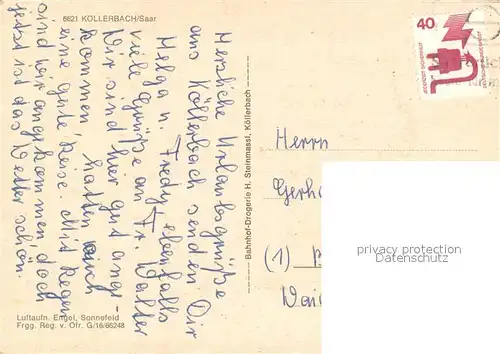 6621 KÖLLERBACH/Saar
Herzliche Urlaubsgrüße
aus Köllerbach senden Dir
Helga u. Fredy ebenfalls
viele Grüße an Fr. Walter
Wir sind hier gut ange-
kommen hatten auch
eine gute Reise. Mit Regen
sind wir angekommen doch
jetzt ist das Wetter schön.
Luftaufn. Engel, Sonnefeld
Frgg. Reg. v. Ofr. G/16/66248
Bahnhof-Drogerie H. Steinmassl, Köllerbach
40
JEDERZEIT SICHERHEIT
DEUTSCHE BUNDESPOST
Herrn
Gerh
(1)
privacy protection
Datenschutz